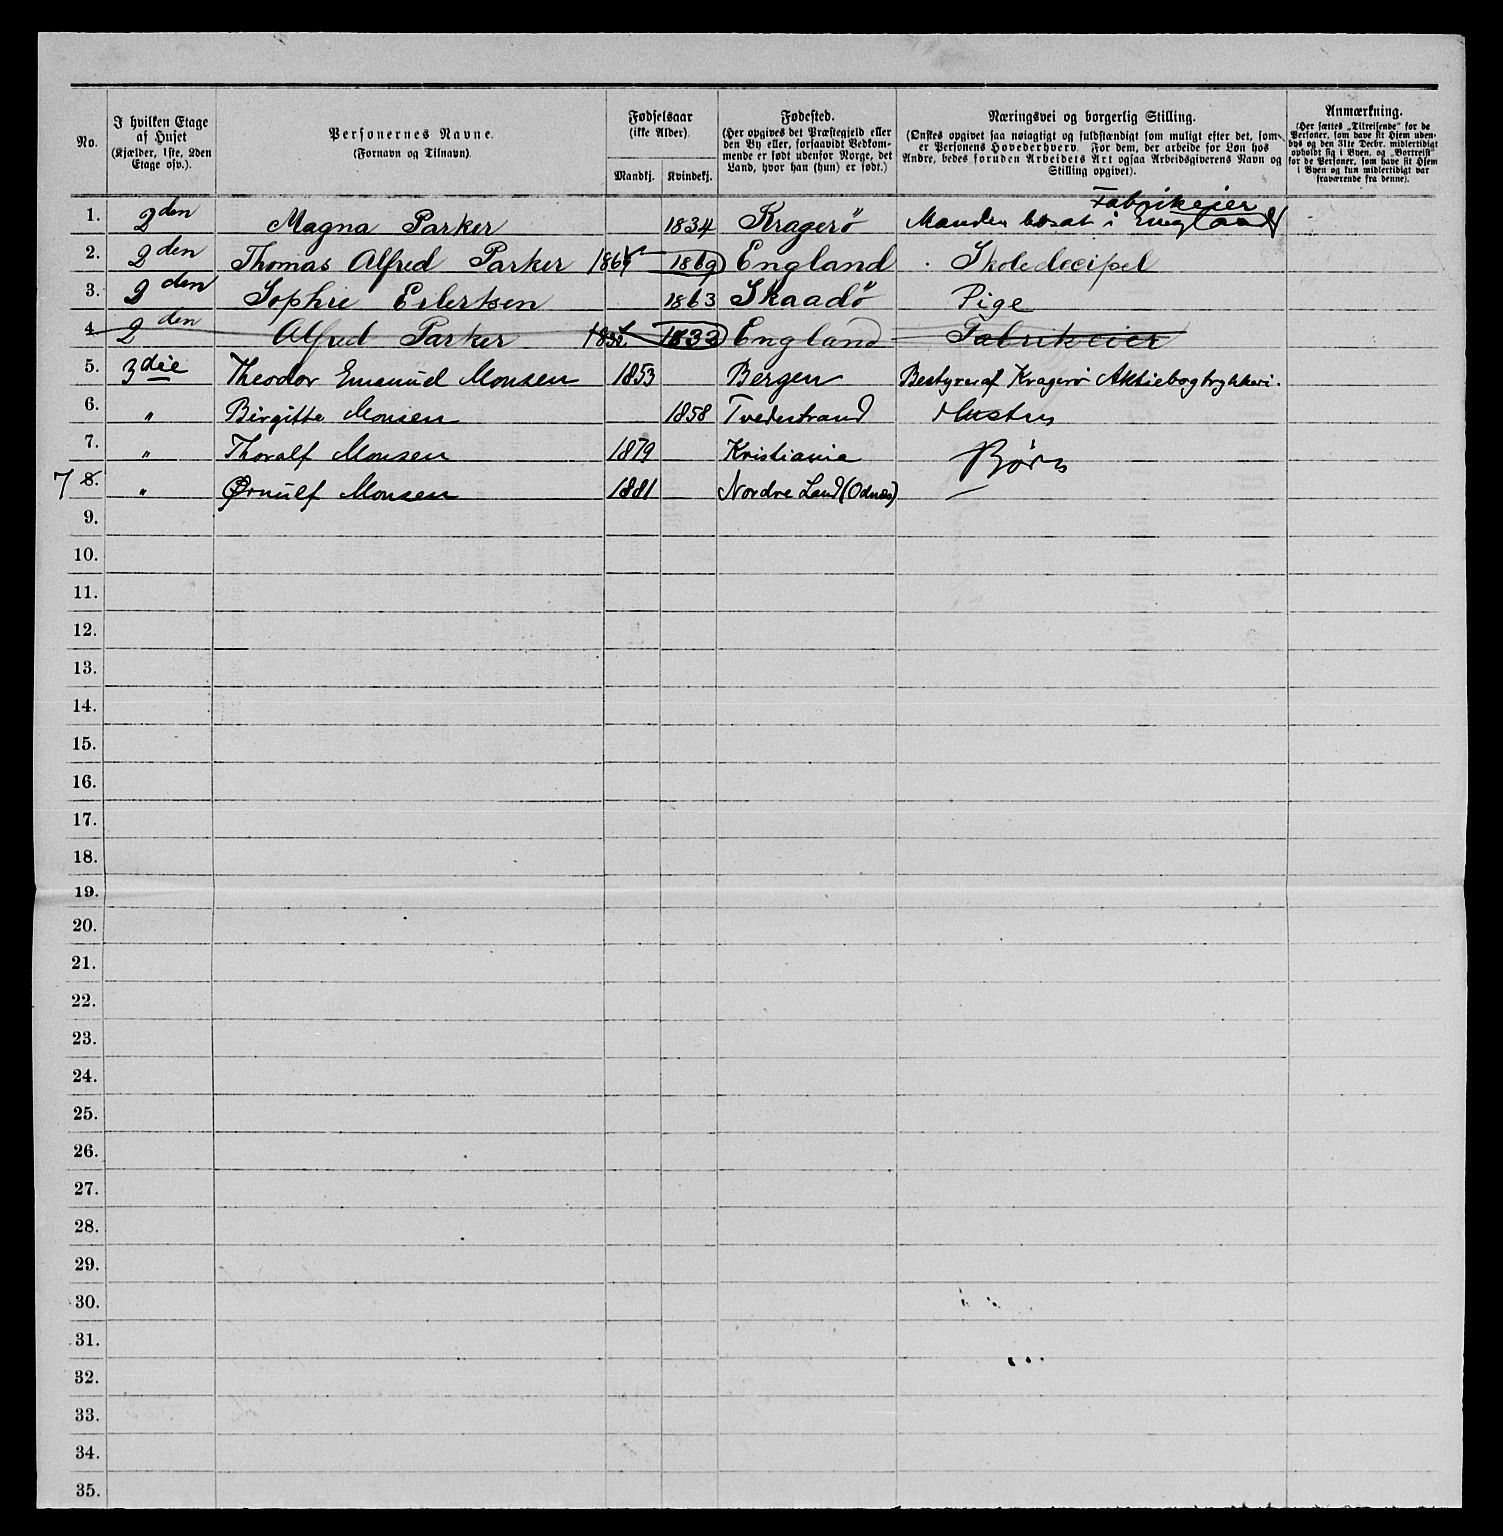 No.
I hvilken Etage af Huset (Kjælder, 1ste, 2den Etage osv.).
Personernes Navne.
(Fornavn og Tilnavn).
Fødselsaar
(ikke Alder).
Mandkj. Kvindekj.
Fødested.
(Her opgives det Præstegjeld eller den By eller, forsaavidt Vedkommende er født udenfor Norge, det Land, hvor han (hun) er født.)
Næringsvei og borgerlig Stilling.
(Ønskes opgivet saa nøiagtigt og fuldstændigt som muligt efter det, som er Personens Hovederhverv. For dem, der arbeide for Løn hos Andre, bedes foruden Arbeidets Art ogsaa Arbeidsgiverens Navn og Stilling opgivet).
Anmærkning.
(Her sættes „Tilreisende“ for de Personer, som have sit Hjem udenbys og den 31te Decbr. midlertidigt opholdt sig i Byen, og „Bortreist“ for de Personer, som have sit Hjem i Byen og kun midlertidigt var fraværende fra denne).
Fabrikeier
1. 2den Magna Parker 1834 Kragerö Manden bosat i England
2. 2den Thomas Alfred Parker 1869 1869 England Skoledecipel
3. 2den Sophie Eilertsen 1863 Skaadö Pige
4 2den Alfred Parker 1832 1832 England Fabrikeier
5. 3die Theodor Emanuel Monsen 1853 Bergen Bestyrer af Kragerö Aktiebogtrykkeri.
6. " Birgitte Monsen 1858 Tvedestrand Hustru
7. " Thoralf Monsen 1879 Kristiania Børn
7 8. " Ørnulf Monsen 1881 Nordre Land (Odnæs)
9.
10.
11.
12.
13.
14.
15.
16.
17.
18.
19.
20.
21.
22.
23.
24.
25.
26.
27.
28.
29.
30.
31.
32.
33.
34.
35.